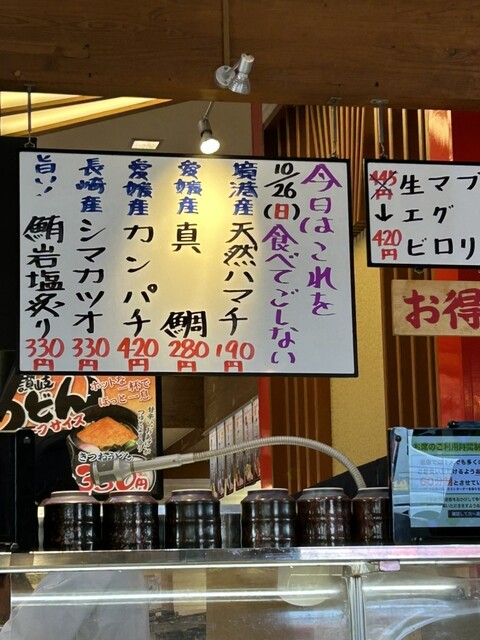 今日はこれを
食べてごしない
10/26(日)
境港産 天然ハマチ 190円
愛媛産 真鯛 280円
愛媛産 カンパチ 420円
長崎産 シマカツオ 330円
旨ッ 鮪岩塩炙り 330円
445円
↓
420円
生マブ
エグ
ビロリ
お得
讃岐
うどん
ホットな一杯で
ほっと一息
きつねうどん